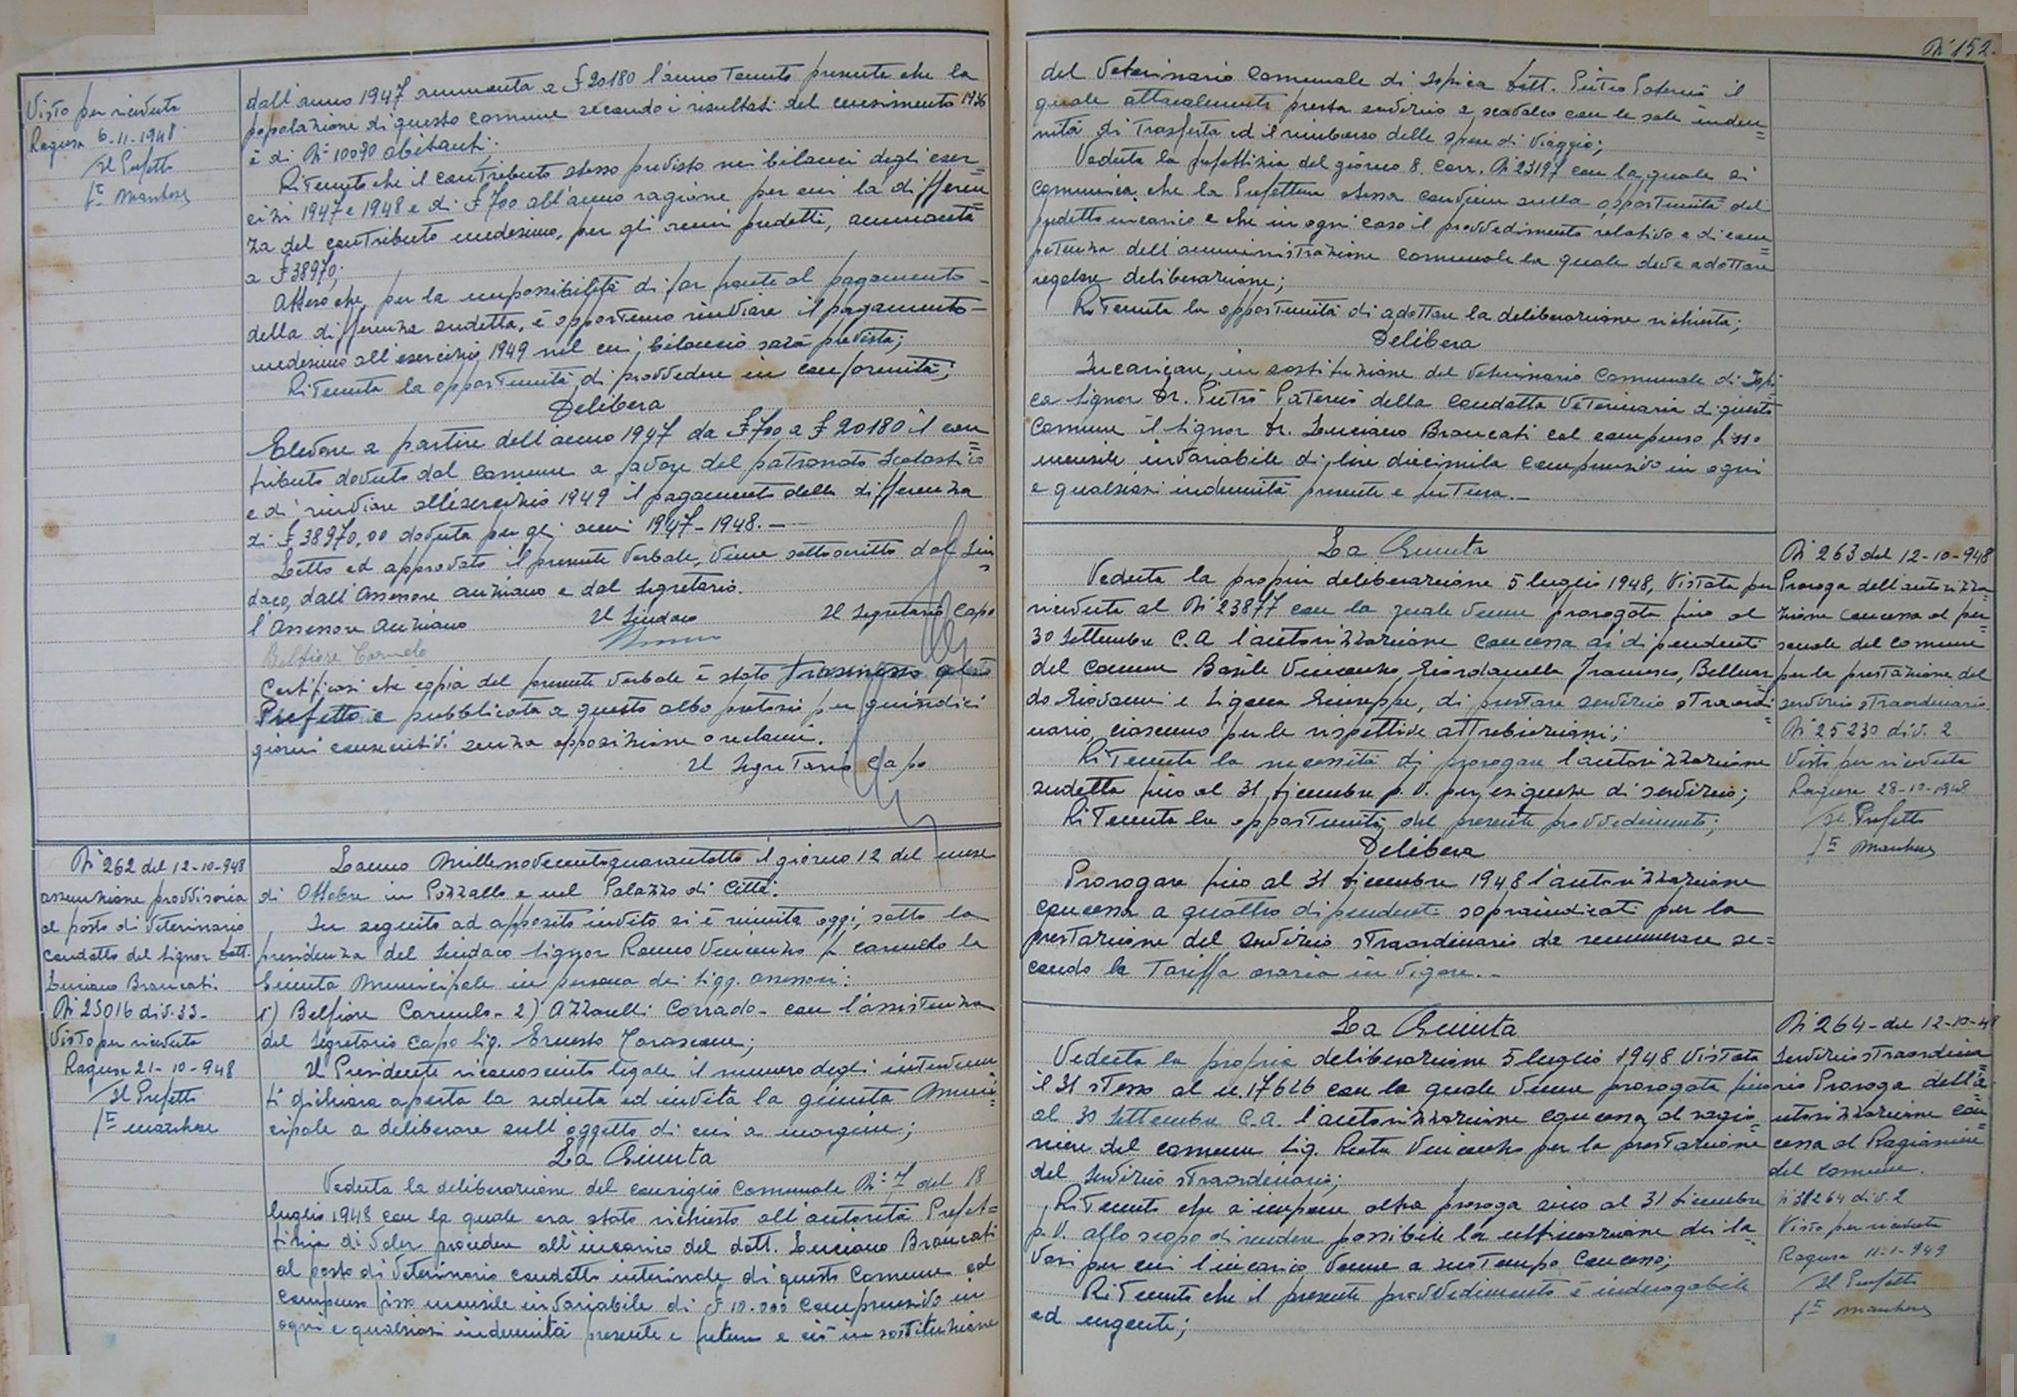 Visto per ricevuta
Ragusa 6-11-1948
Il Prefetto
dall'anno 1947 ammonta a £ 20180 l'anno tenuto presente che la
popolazione di questo comune secondo i risultati del censimento 1936
è di N° 10090 abitanti.
Ritenuto che il contributo stesso previsto nei bilanci degli eser=
cizi 1947 e 1948 e di £ 700 all'anno ragione per cui la differen=
za del contributo medesimo, per gli anni predetti, ammonta
a £ 38970;
Atteso che, per la impossibilità di far fronte al pagamento
della differenza sudetta, è opportuno rinviare il pagamento
medesimo all'esercizio 1949 nel cui bilancio sarà prevista;
Ritenuta la opportunità di provvedere in conformità;
Delibera
Elevare a partire dell'anno 1947 da £ 700 a £ 20180 il con=
tributo dovuto dal Comune a favore del patronato scolastico
e di rinviare all'esercizio 1949 il pagamento della differenza
di £ 38970,00 dovuta per gli anni 1947-1948.—
Letto ed approvato il presente verbale, viene sottoscritto dal Sin=
daco, dall'Assessore anziano e dal Segretario.
l'Assessore anziano Il Sindaco Il Segretario Capo
Belfiore Carmelo
Certificasi che copia del presente verbale è stato trasmesso
Prefetto e pubblicata a questo albo pretorio per quindici
giorni consecutivi senza opposizione o reclami.
Il Segretario Capo
N° 262 del 12-10-948
assunzione provvisoria
al posto di Veterinario
condotto del Signor Dott.
Luciano Brancati.
N° 25016 div. 33-
Visto per ricevuta
Ragusa 21-10-948
Il Prefetto
L'anno Millenovecentoquarantotto il giorno 12 del mese
di Ottobre in Pozzallo e nel Palazzo di Città.
In seguito ad apposito invito si è riunita oggi, sotto la
presidenza del Sindaco Signor Rauno Vincenzo fu Carmelo la
Giunta Municipale in persona dei Sigg. assessori:
1) Belfiore Carmelo - 2) Azzarelli Corrado - con l'assistenza
del Segretario Capo Sig. Ernesto Tarascone;
Il Presidente riconosciuto legale il numero degli intervenu
ti dichiara aperta la seduta ed invita la giunta Muni=
cipale a deliberare sull'oggetto di cui a margine;
La Giunta
Veduta la deliberazione del consiglio Comunale N° 7 del 18
luglio 1948 con la quale era stato richiesto all'autorità Prefet=
tizia di voler procedere all'incarico del dott. Luciano Brancati
al posto di Veterinario condotto interinale di questo Comune col
compenso fisso mensile invariabile di £ 10.000 comprensivo in
ogni e qualsiasi indennità presente e futura e ciò in sostituzione
N° 152.
del Veterinario Comunale di Ispica Dott. Pietro Paternò il
quale attualmente presta servizio a scavalco con le sole inden=
nità di trasferta ed il rimborso delle spese di viaggio;
Veduta la prefettizia del giorno 8 corr. N° 23197 con la quale si
comunica che la Prefettura stessa conviene sulla opportunità del
predetto incarico e che in ogni caso il provvedimento relativo è di com=
petenza dell'amministrazione Comunale la quale deve adottare
regolare deliberazione;
Ritenuta la opportunità di adottare la deliberazione richiesta;
Delibera
Incaricare, in sostituzione del Veterinario Comunale di Ispi
ca Signor Dr. Pietro Paternò della condotta Veterinaria di questo
Comune il Signor Dr. Luciano Brancati col compenso fisso
mensile invariabile di lire diecimila comprensivo in ogni
e qualsiasi indennità presente e futura.—
La Giunta
Veduta la propria deliberazione 5 luglio 1948, vistata per
ricevuta al N° 23877 con la quale venne prorogata fino al
30 Settembre C.A l'autorizzazione concessa ai dipendenti
del comune Basile Vincenzo Giordanella Francesco, Belluar
do Giovanni e Ligama Giuseppe, di prestare servizio straordi=
nario, ciascuno per le rispettive attribuzioni;
Ritenuta la necessità di prorogare l'autorizzazione
sudetta fino al 31 Dicembre p.v. per esigenze di servizio;
Ritenuta la opportunità, del presente provvedimento;
Delibera
Prorogare fino al 31 Dicembre 1948 l'autorizzazione
concessa a quattro dipendenti sopraindicati per la
prestazione del servizio straordinario da remunerare se=
condo la tariffa oraria in vigore.—
N° 263 del 12-10-948
Proroga dell'autorizza=
zione concessa al per=
sonale del comune
per la prestazione del
servizio straordinario.
N° 25230 div. 2
Visto per ricevuta
Ragusa 28-10-1948
Il Prefetto
La Giunta
Veduta la propria deliberazione 5 luglio 1948 vistata
il 31 stesso al n. 17626 con la quale venne prorogata fino
al 30 Settembre C.A. l'autorizzazione concessa al ragio=
niere del comune Sig. Rosta Vincenzo per la prestazione
del servizio straordinario;
Ritenuto che s'impone altra proroga sino al 31 Dicembre
p.v. allo scopo di rendere possibile la ultimazione dei la=
vori per cui l'incarico venne a suo tempo concesso;
Ritenuto che il presente provvedimento è inderogabile
ed urgente;
N° 264 - del 12-10-48
Servizio straordina
rio Proroga dell'a=
utorizzazione con
cessa al Ragioniere
del Comune.
N° 38264 div. 2
Visto per ricevuta
Ragusa 11-1-949
Il Prefetto